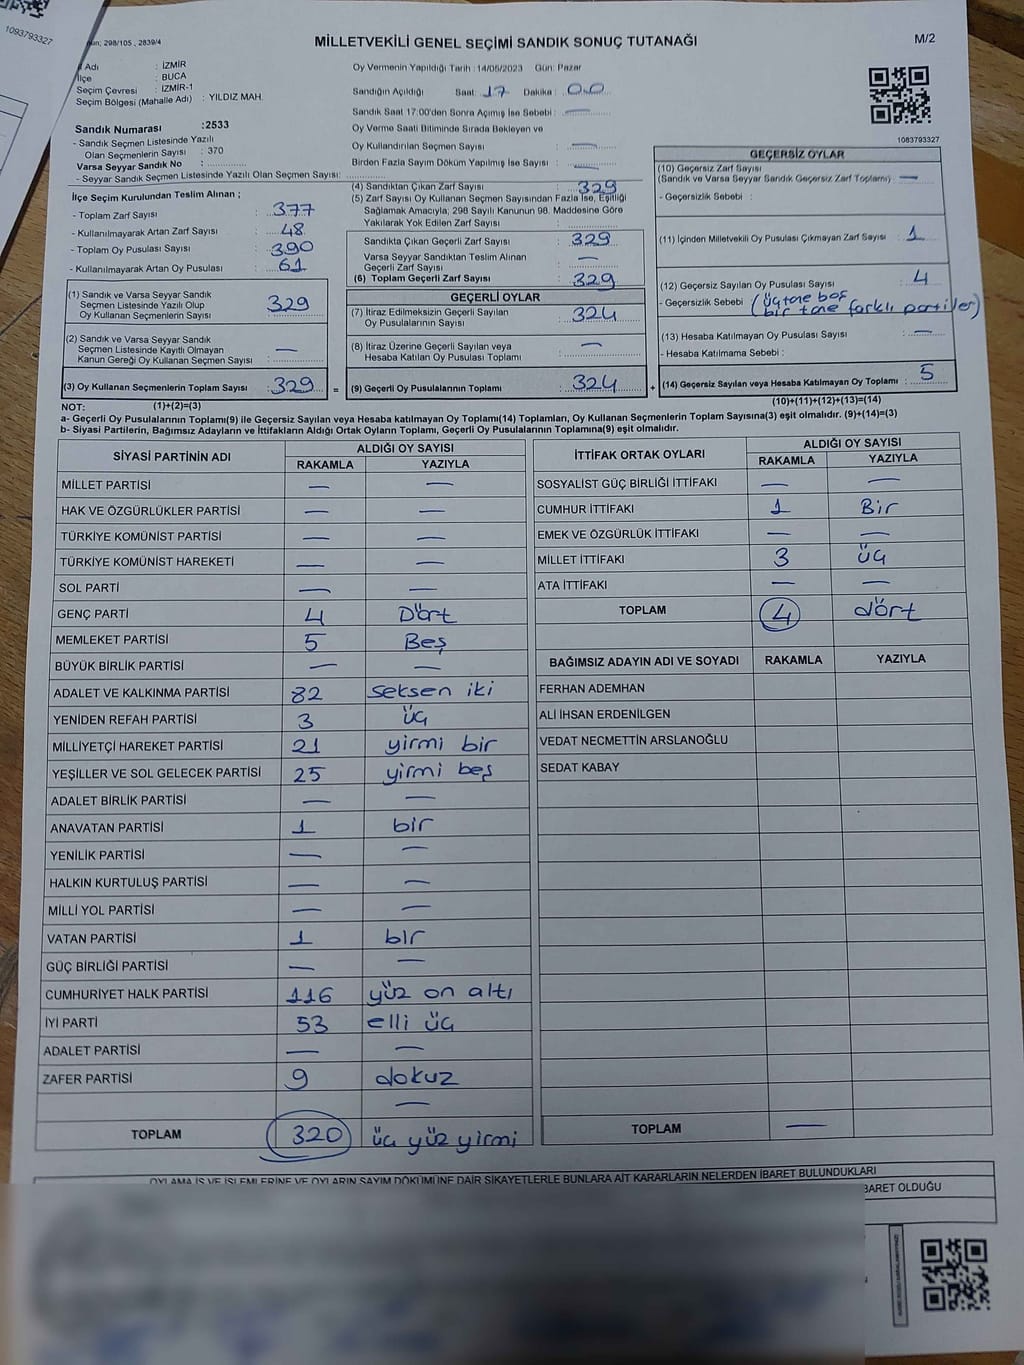 1093793327
298/105 , 2839/4
MİLLETVEKİLİ GENEL SEÇİMİ SANDIK SONUÇ TUTANAĞI
M/2
İl Adı : İZMİR
İlçe : BUCA
Seçim Çevresi : İZMİR-1
Seçim Bölgesi (Mahalle Adı) : YILDIZ MAH.
Sandık Numarası :2533
- Sandık Seçmen Listesinde Yazılı
Olan Seçmenlerin Sayısı : 370
Varsa Seyyar Sandık No :
- Seyyar Sandık Seçmen Listesinde Yazılı Olan Seçmen Sayısı:
Oy Vermenin Yapıldığı Tarih : 14/05/2023 Gün: Pazar
Sandığın Açıldığı Saat: 17 Dakika : 00
Sandık Saat 17:00'den Sonra Açımış İse Sebebi : —
Oy Verme Saati Bitiminde Sırada Bekleyen ve
Oy Kullandırılan Seçmen Sayısı : —
Birden Fazla Sayım Döküm Yapılmış İse Sayısı : —
1083793327
İlçe Seçim Kurulundan Teslim Alınan ;
- Toplam Zarf Sayısı : 377
- Kullanılmayarak Artan Zarf Sayısı : 48
- Toplam Oy Pusulası Sayısı : 390
- Kullanılmayarak Artan Oy Pusulası : 61
(1) Sandık ve Varsa Seyyar Sandık
Seçmen Listesinde Yazılı Olup
Oy Kullanan Seçmenlerin Sayısı : 329
(2) Sandık ve Varsa Seyyar Sandık
Seçmen Listesinde Kayıtlı Olmayan
Kanun Gereği Oy Kullanan Seçmen Sayısı : —
(3) Oy Kullanan Seçmenlerin Toplam Sayısı : 329 =
(4) Sandıktan Çıkan Zarf Sayısı : 329
(5) Zarf Sayısı Oy Kullanan Seçmen Sayısından Fazla İse, Eşitliği
Sağlamak Amacıyla; 298 Sayılı Kanunun 98. Maddesine Göre
Yakılarak Yok Edilen Zarf Sayısı :
Sandıkta Çıkan Geçerli Zarf Sayısı : 329
Varsa Seyyar Sandıktan Teslim Alınan
Geçerli Zarf Sayısı : —
(6) Toplam Geçerli Zarf Sayısı : 329
GEÇERLİ OYLAR
(7) İtiraz Edilmeksizin Geçerli Sayılan
Oy Pusulalarının Sayısı : 324
(8) İtiraz Üzerine Geçerli Sayılan veya
Hesaba Katılan Oy Pusulası Toplamı : —
(9) Geçerli Oy Pusulalarının Toplamı : 324 +
GEÇERSİZ OYLAR
(10) Geçersiz Zarf Sayısı
(Sandık ve Varsa Seyyar Sandık Geçersiz Zarf Toplamı) : —
- Geçersizlik Sebebi :
(11) İçinden Milletvekili Oy Pusulası Çıkmayan Zarf Sayısı : 1
(12) Geçersiz Sayılan Oy Pusulası Sayısı : 4
- Geçersizlik Sebebi : (üç tane boş
bir tane farklı partiler)
(13) Hesaba Katılmayan Oy Pusulası Sayısı : —
- Hesaba Katılmama Sebebi :
(14) Geçersiz Sayılan veya Hesaba Katılmayan Oy Toplamı : 5
(10)+(11)+(12)+(13)=(14)
NOT: (1)+(2)=(3)
a- Geçerli Oy Pusulalarının Toplamı(9) ile Geçersiz Sayılan veya Hesaba katılmayan Oy Toplamı(14) Toplamları, Oy Kullanan Seçmenlerin Toplam Sayısına(3) eşit olmalıdır. (9)+(14)=(3)
b- Siyasi Partilerin, Bağımsız Adayların ve İttifakların Aldığı Ortak Oyların Toplamı, Geçerli Oy Pusulalarının Toplamına(9) eşit olmalıdır.
SİYASİ PARTİNİN ADI ALDIĞI OY SAYISI
RAKAMLA YAZIYLA
MİLLET PARTİSİ — —
HAK VE ÖZGÜRLÜKLER PARTİSİ — —
TÜRKİYE KOMÜNİST PARTİSİ — —
TÜRKİYE KOMÜNİST HAREKETİ — —
SOL PARTİ — —
GENÇ PARTİ 4 Dört
MEMLEKET PARTİSİ 5 Beş
BÜYÜK BİRLİK PARTİSİ — —
ADALET VE KALKINMA PARTİSİ 82 seksen iki
YENİDEN REFAH PARTİSİ 3 üç
MİLLİYETÇİ HAREKET PARTİSİ 21 yirmi bir
YEŞİLLER VE SOL GELECEK PARTİSİ 25 yirmi beş
ADALET BİRLİK PARTİSİ — —
ANAVATAN PARTİSİ 1 bir
YENİLİK PARTİSİ — —
HALKIN KURTULUŞ PARTİSİ — —
MİLLİ YOL PARTİSİ — —
VATAN PARTİSİ 1 bir
GÜÇ BİRLİĞİ PARTİSİ — —
CUMHURİYET HALK PARTİSİ 116 yüz on altı
İYİ PARTİ 53 elli üç
ADALET PARTİSİ — —
ZAFER PARTİSİ 9 dokuz
—
TOPLAM 320 üç yüz yirmi
İTTİFAK ORTAK OYLARI ALDIĞI OY SAYISI
RAKAMLA YAZIYLA
SOSYALİST GÜÇ BİRLİĞİ İTTİFAKI — —
CUMHUR İTTİFAKI 1 Bir
EMEK VE ÖZGÜRLÜK İTTİFAKI — —
MİLLET İTTİFAKI 3 üç
ATA İTTİFAKI — —
TOPLAM 4 dört
BAĞIMSIZ ADAYIN ADI VE SOYADI RAKAMLA YAZIYLA
FERHAN ADEMHAN
ALİ İHSAN ERDENİLGEN
VEDAT NECMETTİN ARSLANOĞLU
SEDAT KABAY
TOPLAM —
OYLAMA İŞ VE İŞLEMLERİNE VE OYLARIN SAYIM DÖKÜMÜNE DAİR ŞİKAYETLERLE BUNLARA AİT KARARLARIN NELERDEN İBARET BULUNDUKLARI
BARET OLDUĞU